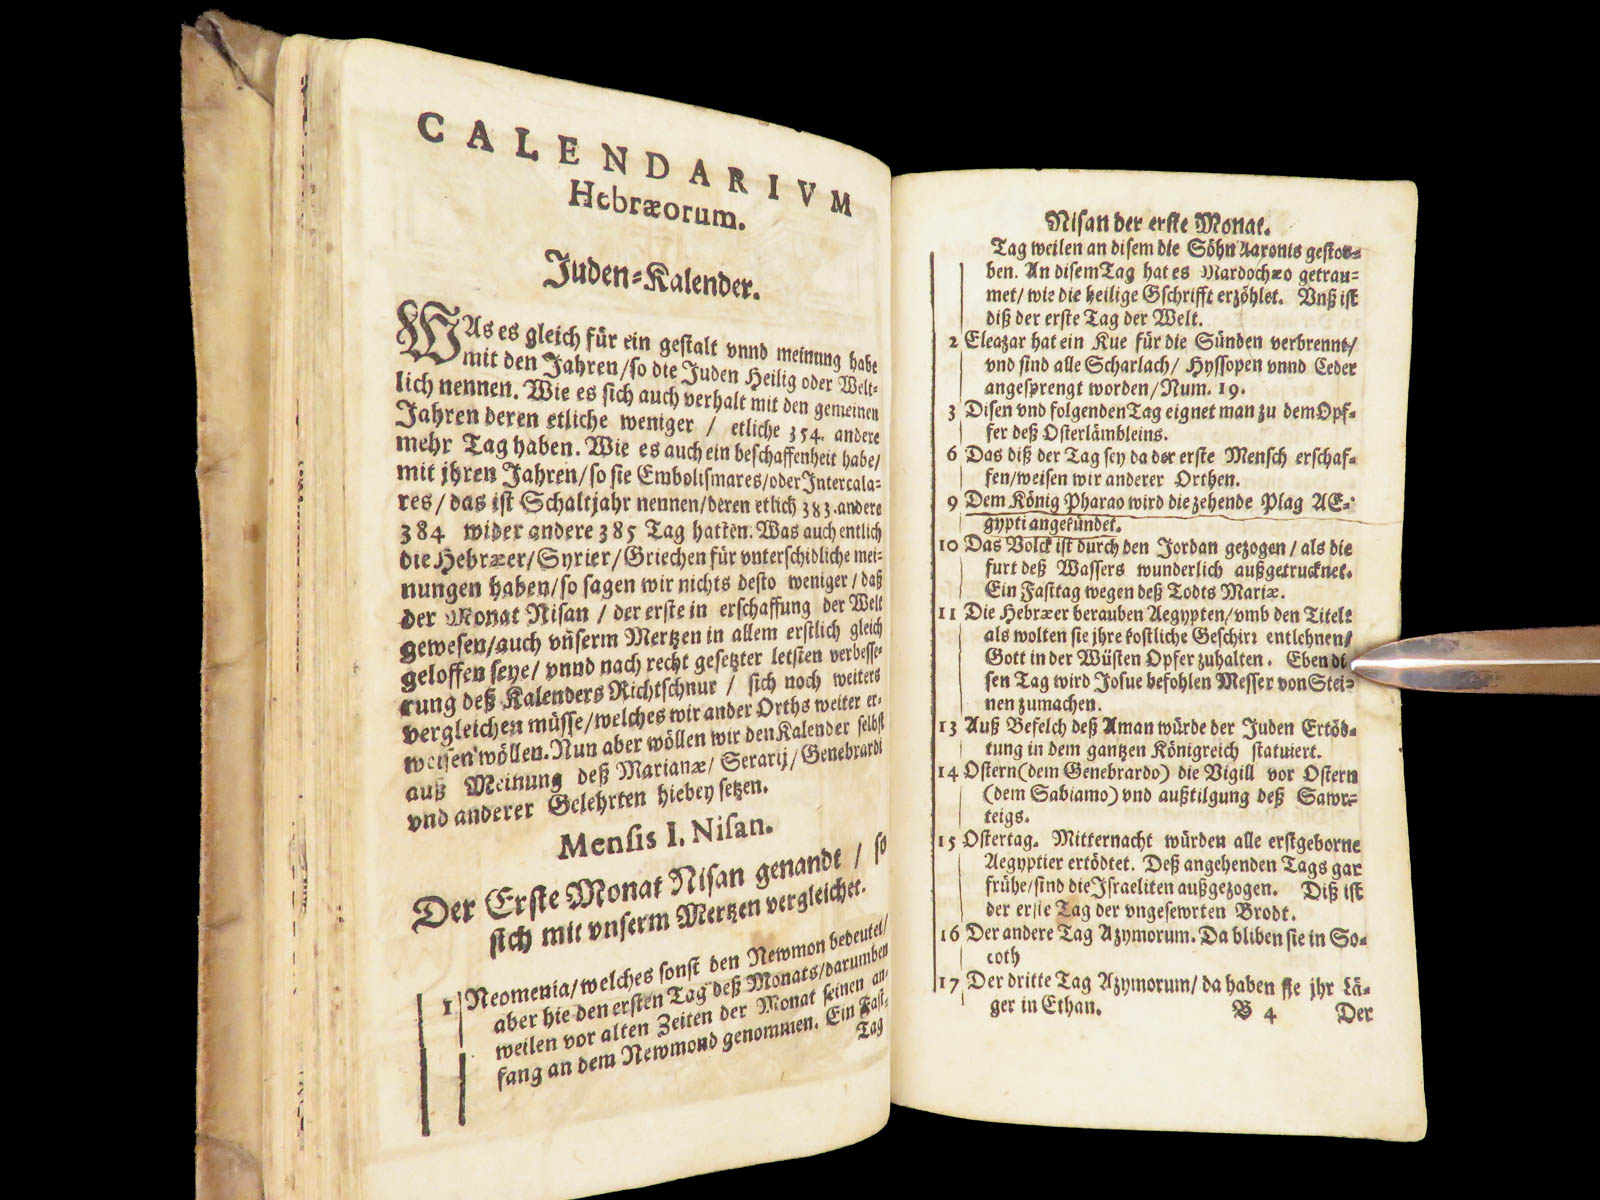 CALENDARIVM
Hebræorum.
Juden-Kalender.
WAs es gleich für ein gestalt vnnd meinung habe
mit den Jahren/so die Juden Heilig oder Welt-
lich nennen. Wie es sich auch verhalt mit den gemeinen
Jahren deren etliche weniger / etliche 354. andere
mehr Tag haben. Wie es auch ein beschaffenheit habe/
mit jhren Jahren/so sie Embolismares/oder Intercala-
res/das ist Schaltjahr nennen/deren etlich 383.andere
384 wider andere 385 Tag hatten. Was auch entlich
die Hebræer/Syrier/Griechen für vnterschidliche mei-
nungen haben/so sagen wir nichts desto weniger/daß
der Monat Nisan / der erste in erschaffung der Welt
gewesen/auch vnserm Mertzen in allem erstlich gleich
geloffen seye/ vnnd nach recht gesetzter letsten verbesse-
rung deß Kalenders Richtschnur / sich noch weiters
vergleichen müsse/welches wir ander Orths weiter er-
weisen wöllen. Nun aber wöllen wir den Kalender selbst
auß Meinung deß Marianæ/ Serarij/Genebrardi
vnd anderer Gelehrten hiebey setzen.
Mensis I. Nisan.
Der Erste Monat Nisan genandt / so
sich mit vnserm Mertzen vergleichet.
1 Neomenia/welches sonst den Newmon bedeutet/
aber hie den ersten Tag deß Monats/darumben
weilen vor alten Zeiten der Monat seinen an-
fang an dem Newmond genommen. Ein Fast-
Tag
Nisan der erste Monat.
Tag weilen an disem die Söhn Aaronis gestor-
ben. An disem Tag hat es Mardochæo getrau-
met/ wie die heilige Gschrifft erzöhlet. Vnß ist
diß der erste Tag der Welt.
2 Eleazar hat ein Kue für die Sünden verbrennt/
vnd sind alle Scharlach/ Hyssopen vnnd Ceder
angesprengt worden/Num. 19.
3 Disen vnd folgenden Tag eignet man zu dem Opf-
fer deß Osterlämbleins.
6 Das diß der Tag sey da der erste Mensch erschaf-
fen/weisen wir anderer Orthen.
9 Dem König Pharao wird die zehende Plag AE-
gypti angekündet.
10 Das Volck ist durch den Jordan gezogen/ als die
furt deß Wassers wunderlich außgetrucknet.
Ein Fasttag wegen deß Todts Mariæ.
11 Die Hebræer berauben Aegypten/vmb den Titel:
als wolten sie jhre kostliche Geschirr entlehnen/
Gott in der Wüsten Opfer zuhalten. Eben di-
sen Tag wird Josue befohlen Messer von Stei-
nen zumachen.
13 Auß Befelch deß Aman würde der Juden Ertöd-
tung in dem gantzen Königreich statuiert.
14 Ostern(dem Genebrardo) die Vigill vor Ostern
(dem Sabiamo)vnd außtilgung deß Sawr-
teigs.
15 Ostertag. Mitternacht würden alle erstgeborne
Aegyptier ertödtet. Deß angehenden Tags gar
frühe/sind die Israeliten außgezogen. Diß ist
der erste Tag der vngesewrten Brodt.
16 Der andere Tag Azymorum. Da bliben sie in So-
coth
17 Der dritte Tag Azymorum/ da haben sie jhr Lä-
ger in Ethan.
B 4 Der